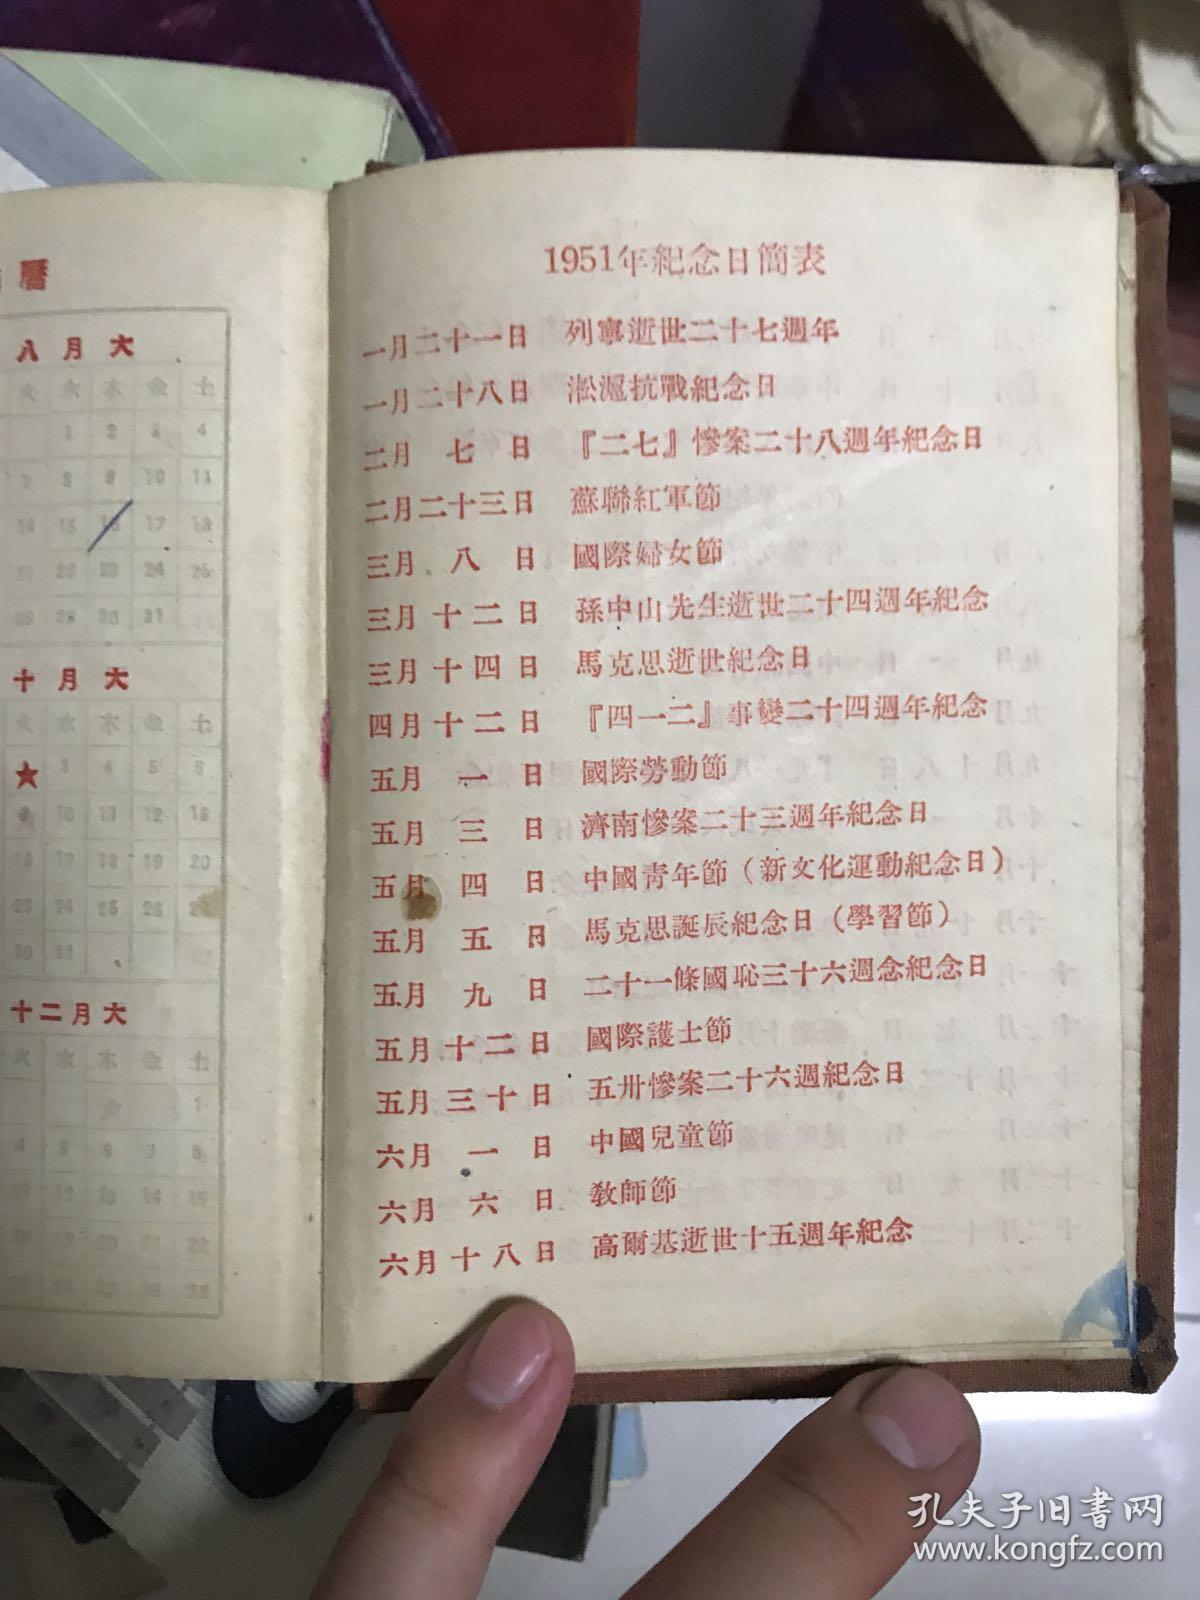 曆
八月大
火 水 木 金 土
1 2 3 4
7 8 9 10 11
14 15 16 17 18
22 23 24 25
28 29 30 31
十月大
火 水 木 金 土
★ 3 4 5 6
9 10 11 12 13
16 17 18 19 20
23 24 25 26 27
30 31
十二月大
火 水 木 金 土
★ 1
4 5 6 7 8
1951年紀念日簡表
一月二十一日 列寧逝世二十七週年
一月二十八日 淞滬抗戰紀念日
二月七日 『二七』慘案二十八週年紀念日
二月二十三日 蘇聯紅軍節
三月八日 國際婦女節
三月十二日 孫中山先生逝世二十四週年紀念
三月十四日 馬克思逝世紀念日
四月十二日 『四一二』事變二十四週年紀念
五月一日 國際勞動節
五月三日 濟南慘案二十三週年紀念日
五月四日 中國靑年節（新文化運動紀念日）
五月五日 馬克思誕辰紀念日（學習節）
五月九日 二十一條國恥三十六週念紀念日
五月十二日 國際護士節
五月三十日 五卅慘案二十六週紀念日
六月一日 中國兒童節
六月六日 敎師節
六月十八日 高爾基逝世十五週年紀念
孔夫子旧书网
www.kongfz.com